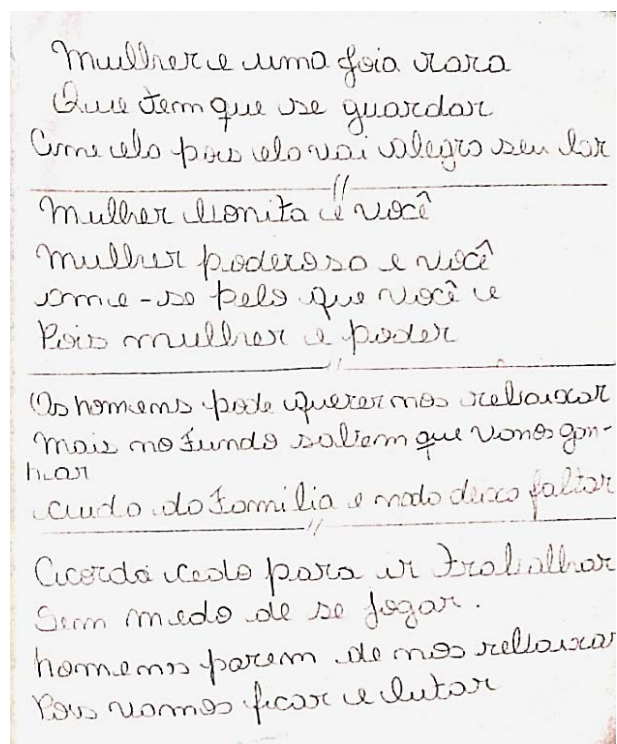 Mulher e uma joia rara
Que tem que se guardar
Ame ela pois ela vai alegra seu lar
//
Mulher bonita é você
Mulher poderosa e você
ame-se pelo que você e
Pois mulher e poder
//
Os homens pode querer nos rebaixar
Mais no fundo sabem que vamos gan-
har
cuida da família e nada deixa faltar
//
Acorda cedo para ir trabalhar
Sem medo de se jogar.
homens parem de nos rebaixar
Pois vamos ficar e lutar